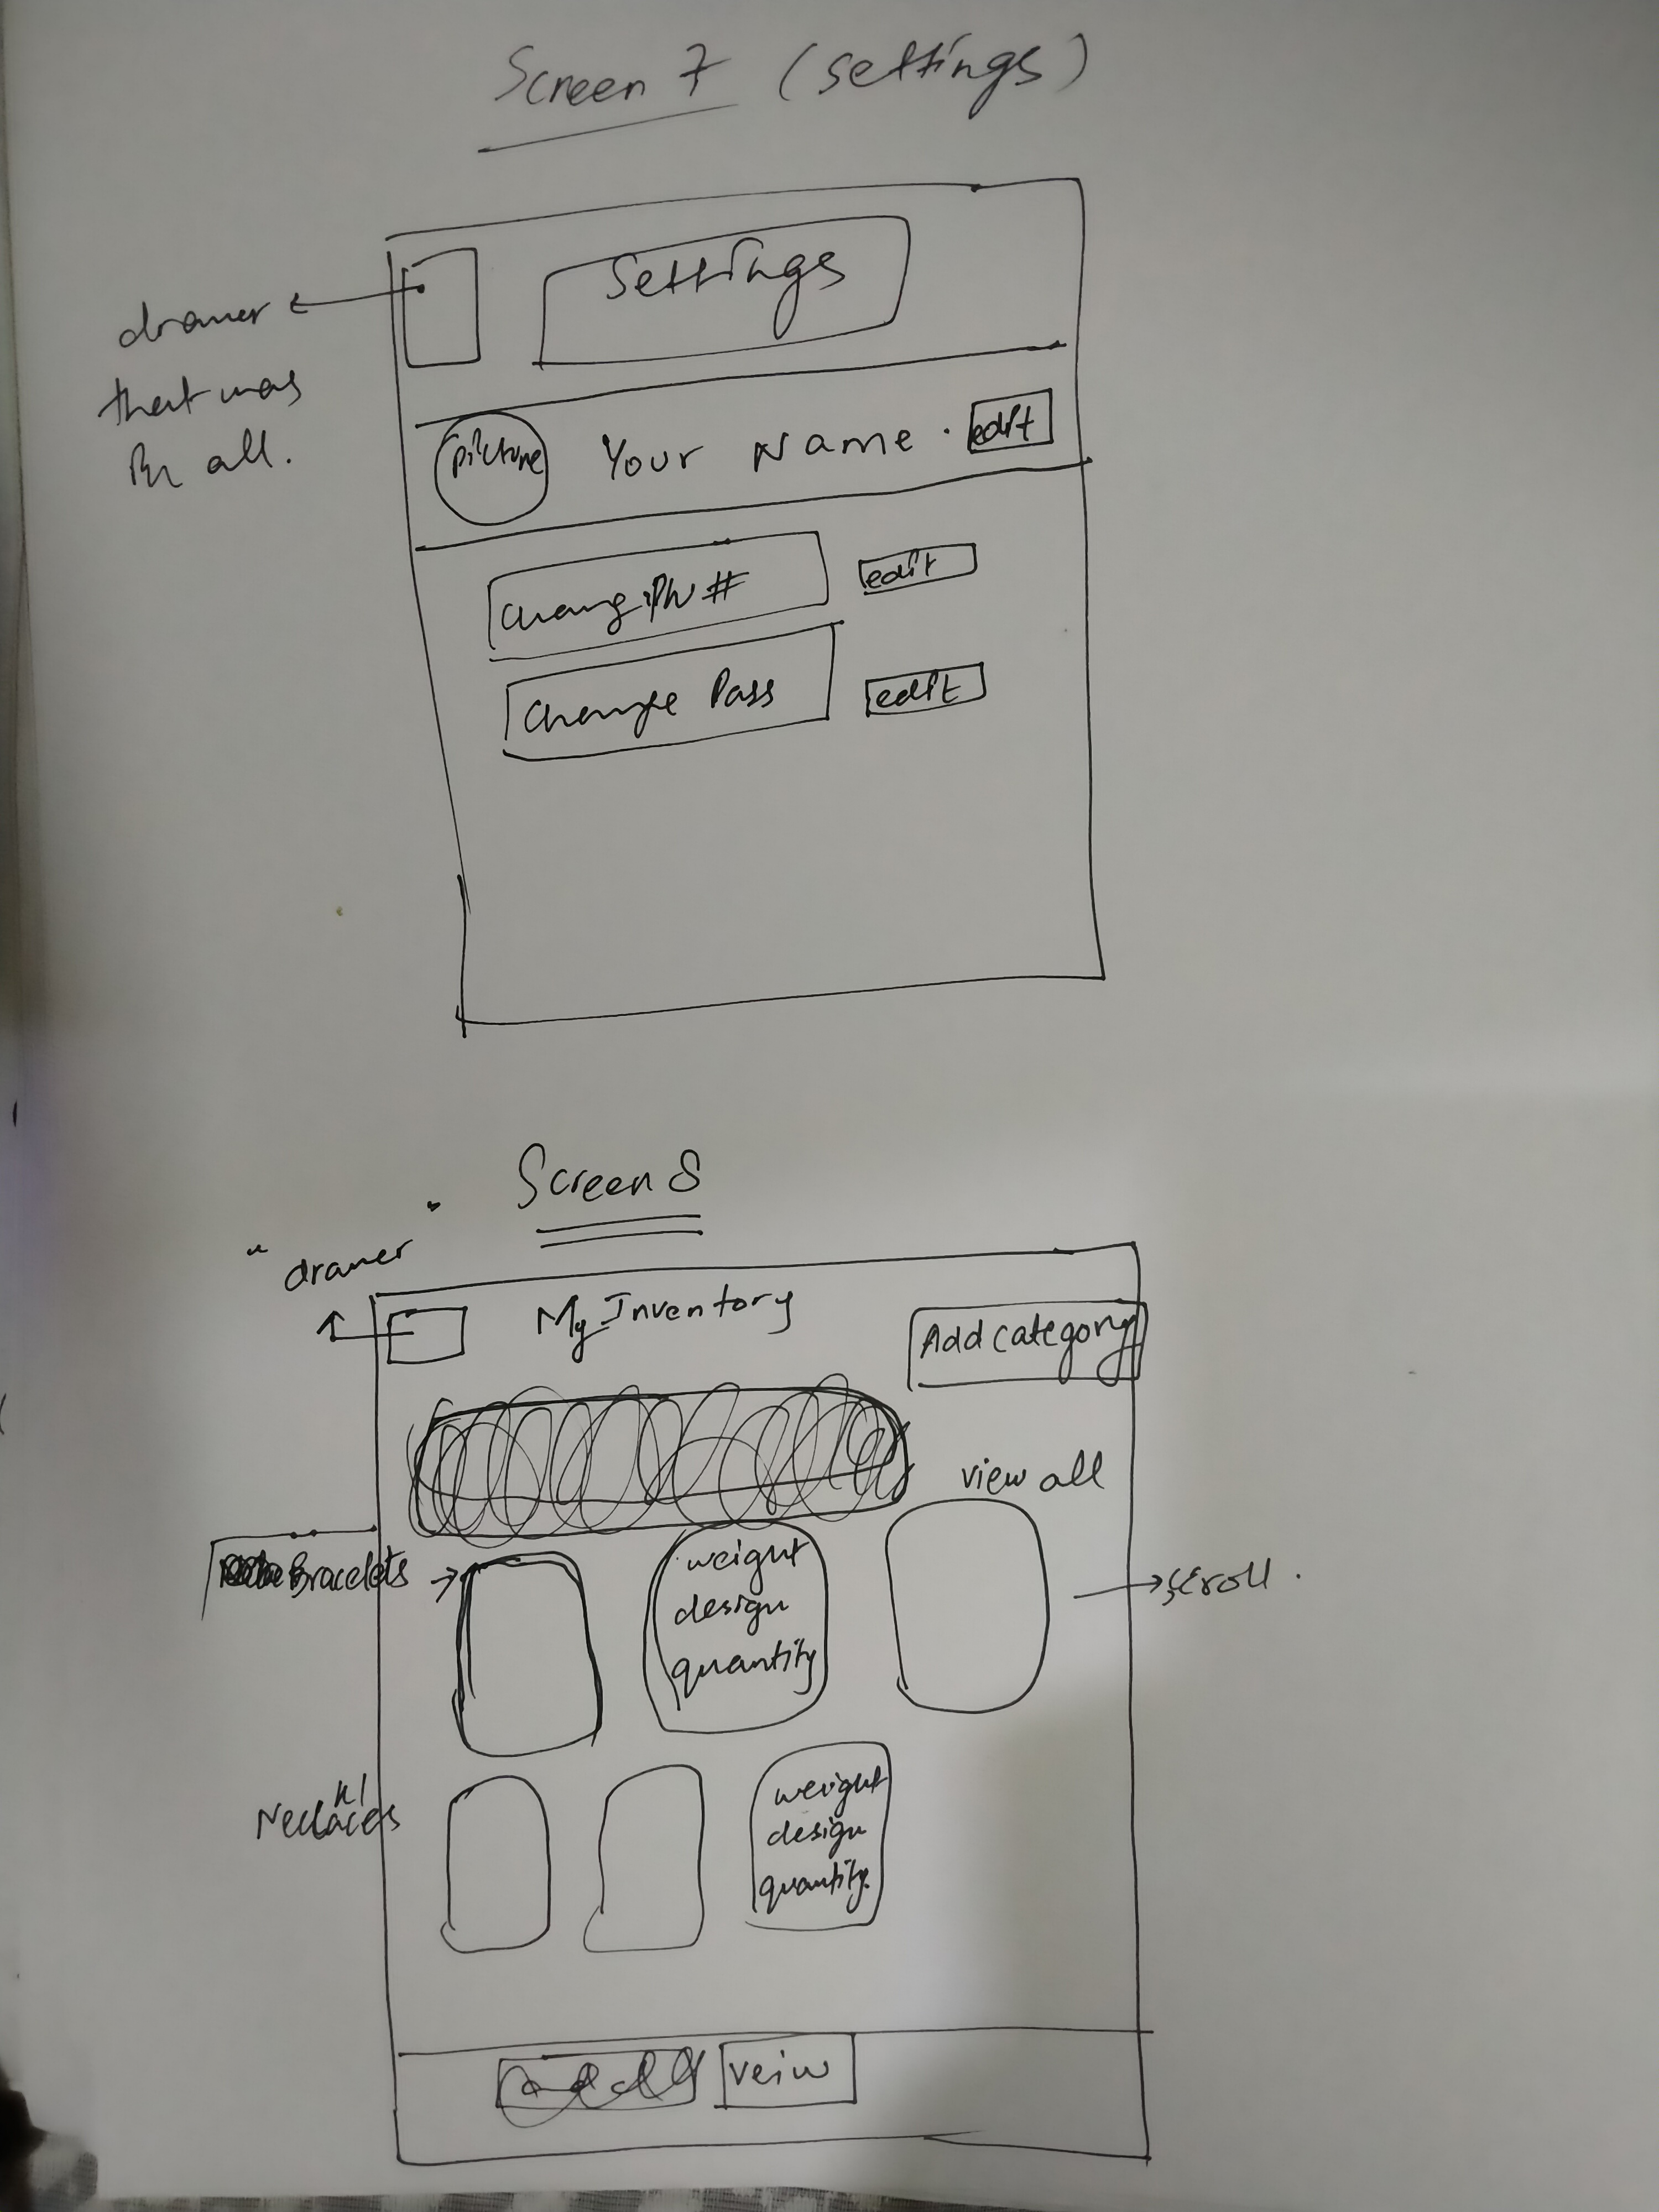 Screen 7 (settings)
Settings
drawer
that was
in all.
picture Your Name . edit
Chang Ph # edit
Change Pass edit
Screen 8
"drawer"
My Inventory
Add category
view all
Bracelets
weight
design
quantity
scroll.
Necklaces
weight
design
quantity.
veiw